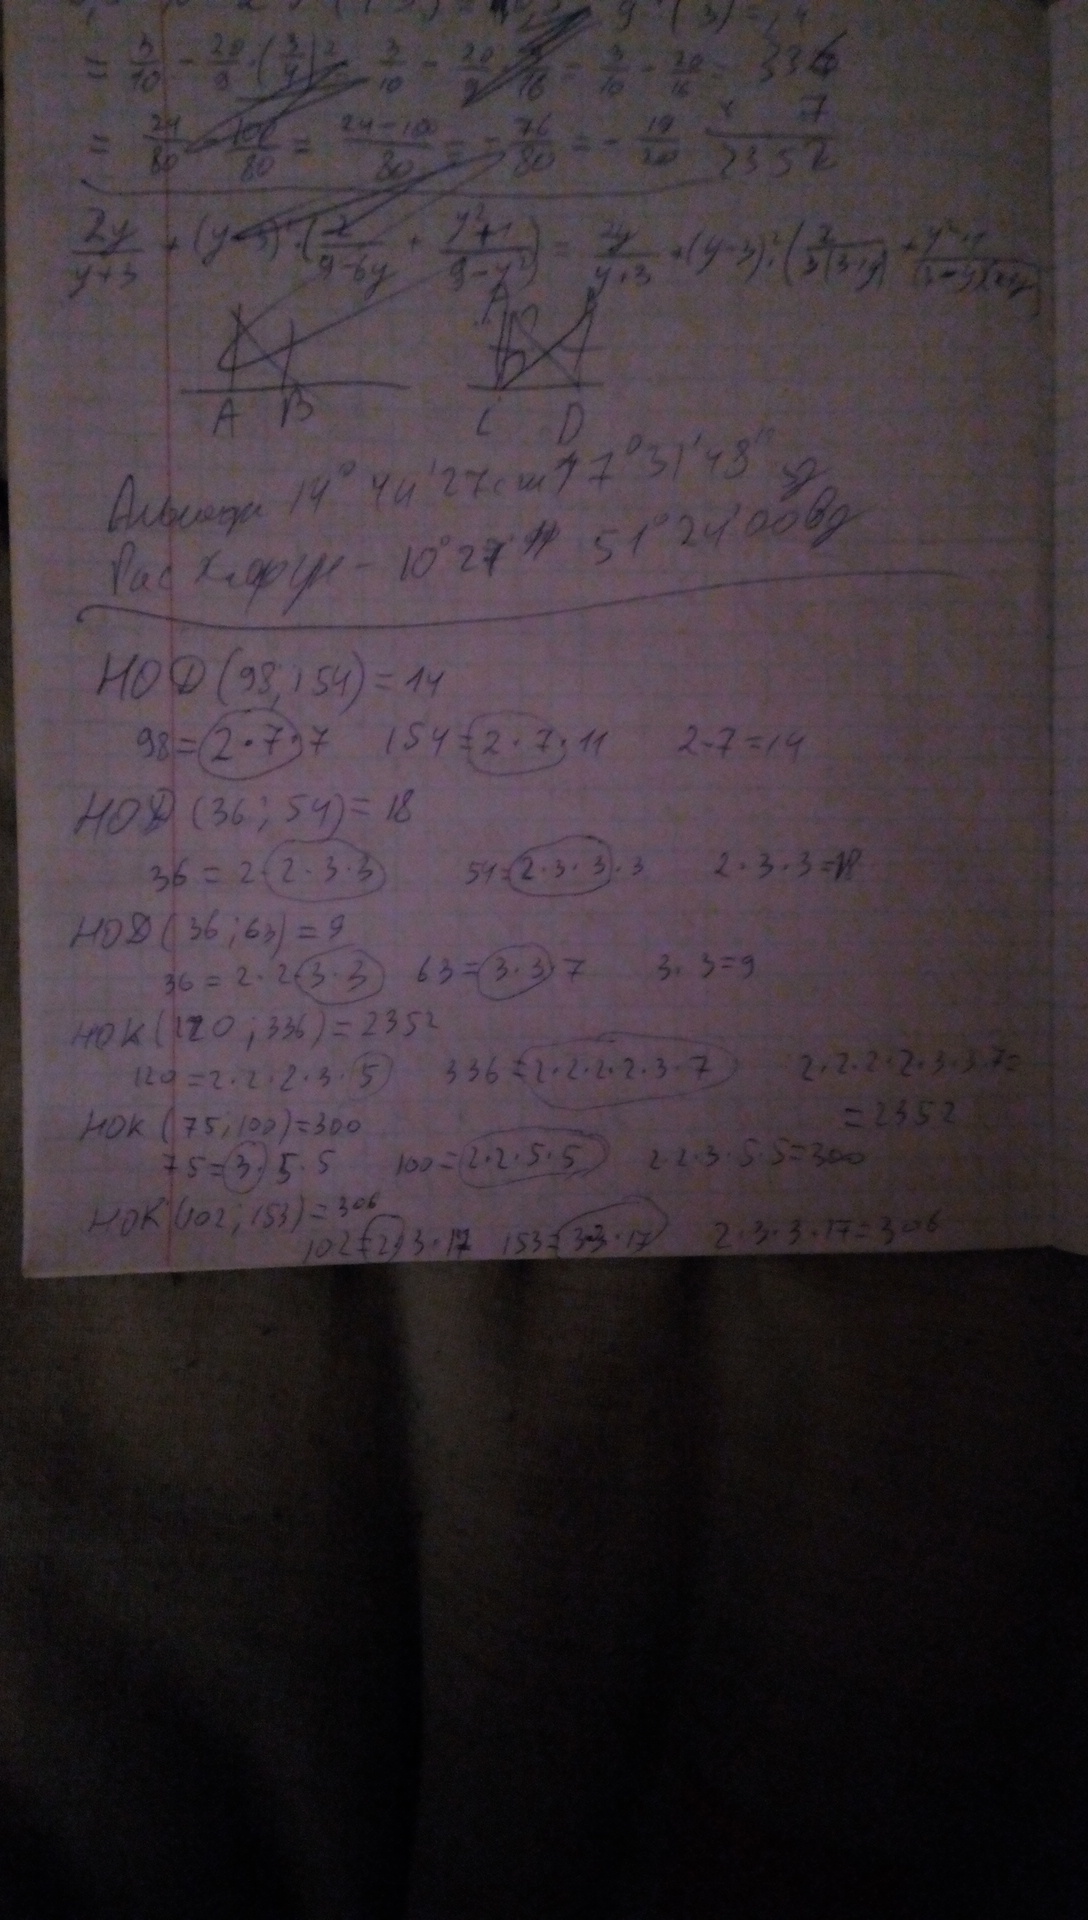 = 3/10 - 20/9 · (3/4)² 3/10 - 20/9 · 9/16 = 3/10 - 20/16 336
= 24/80 - 100/80 = 24-100/80 = - 76/80 = - 19/20 × 7
2352
2y/y+3 + (y-3)² · (2/9-6y + y²+1/9-y²) = 2y/y+3 + (y-3)² · (
A B C D
14° 44' 27 17° 31' 48"
Рас - 10° 27' 51° 24' 00 вд
НОД (98; 154) = 14
98 = 2·7·7 154 = 2·7·11 2·7=14
НОД (36; 54) = 18
36 = 2·2·3·3 54=2·3·3·3 2·3·3=18
НОД (36; 63) = 9
36 = 2·2·3·3 63 = 3·3·7 3·3=9
НОК (120; 336) = 2352
120 = 2·2·2·3·5 336 = 2·2·2·2·3·7 2·2·2·2·3·3·7=
= 2352
НОК (75; 100) = 300
75 = 3·5·5 100 = 2·2·5·5 2·2·3·5·5=300
НОК (102; 153) = 306
102 = 2·3·17 153 = 3·3·17 2·3·3·17=306